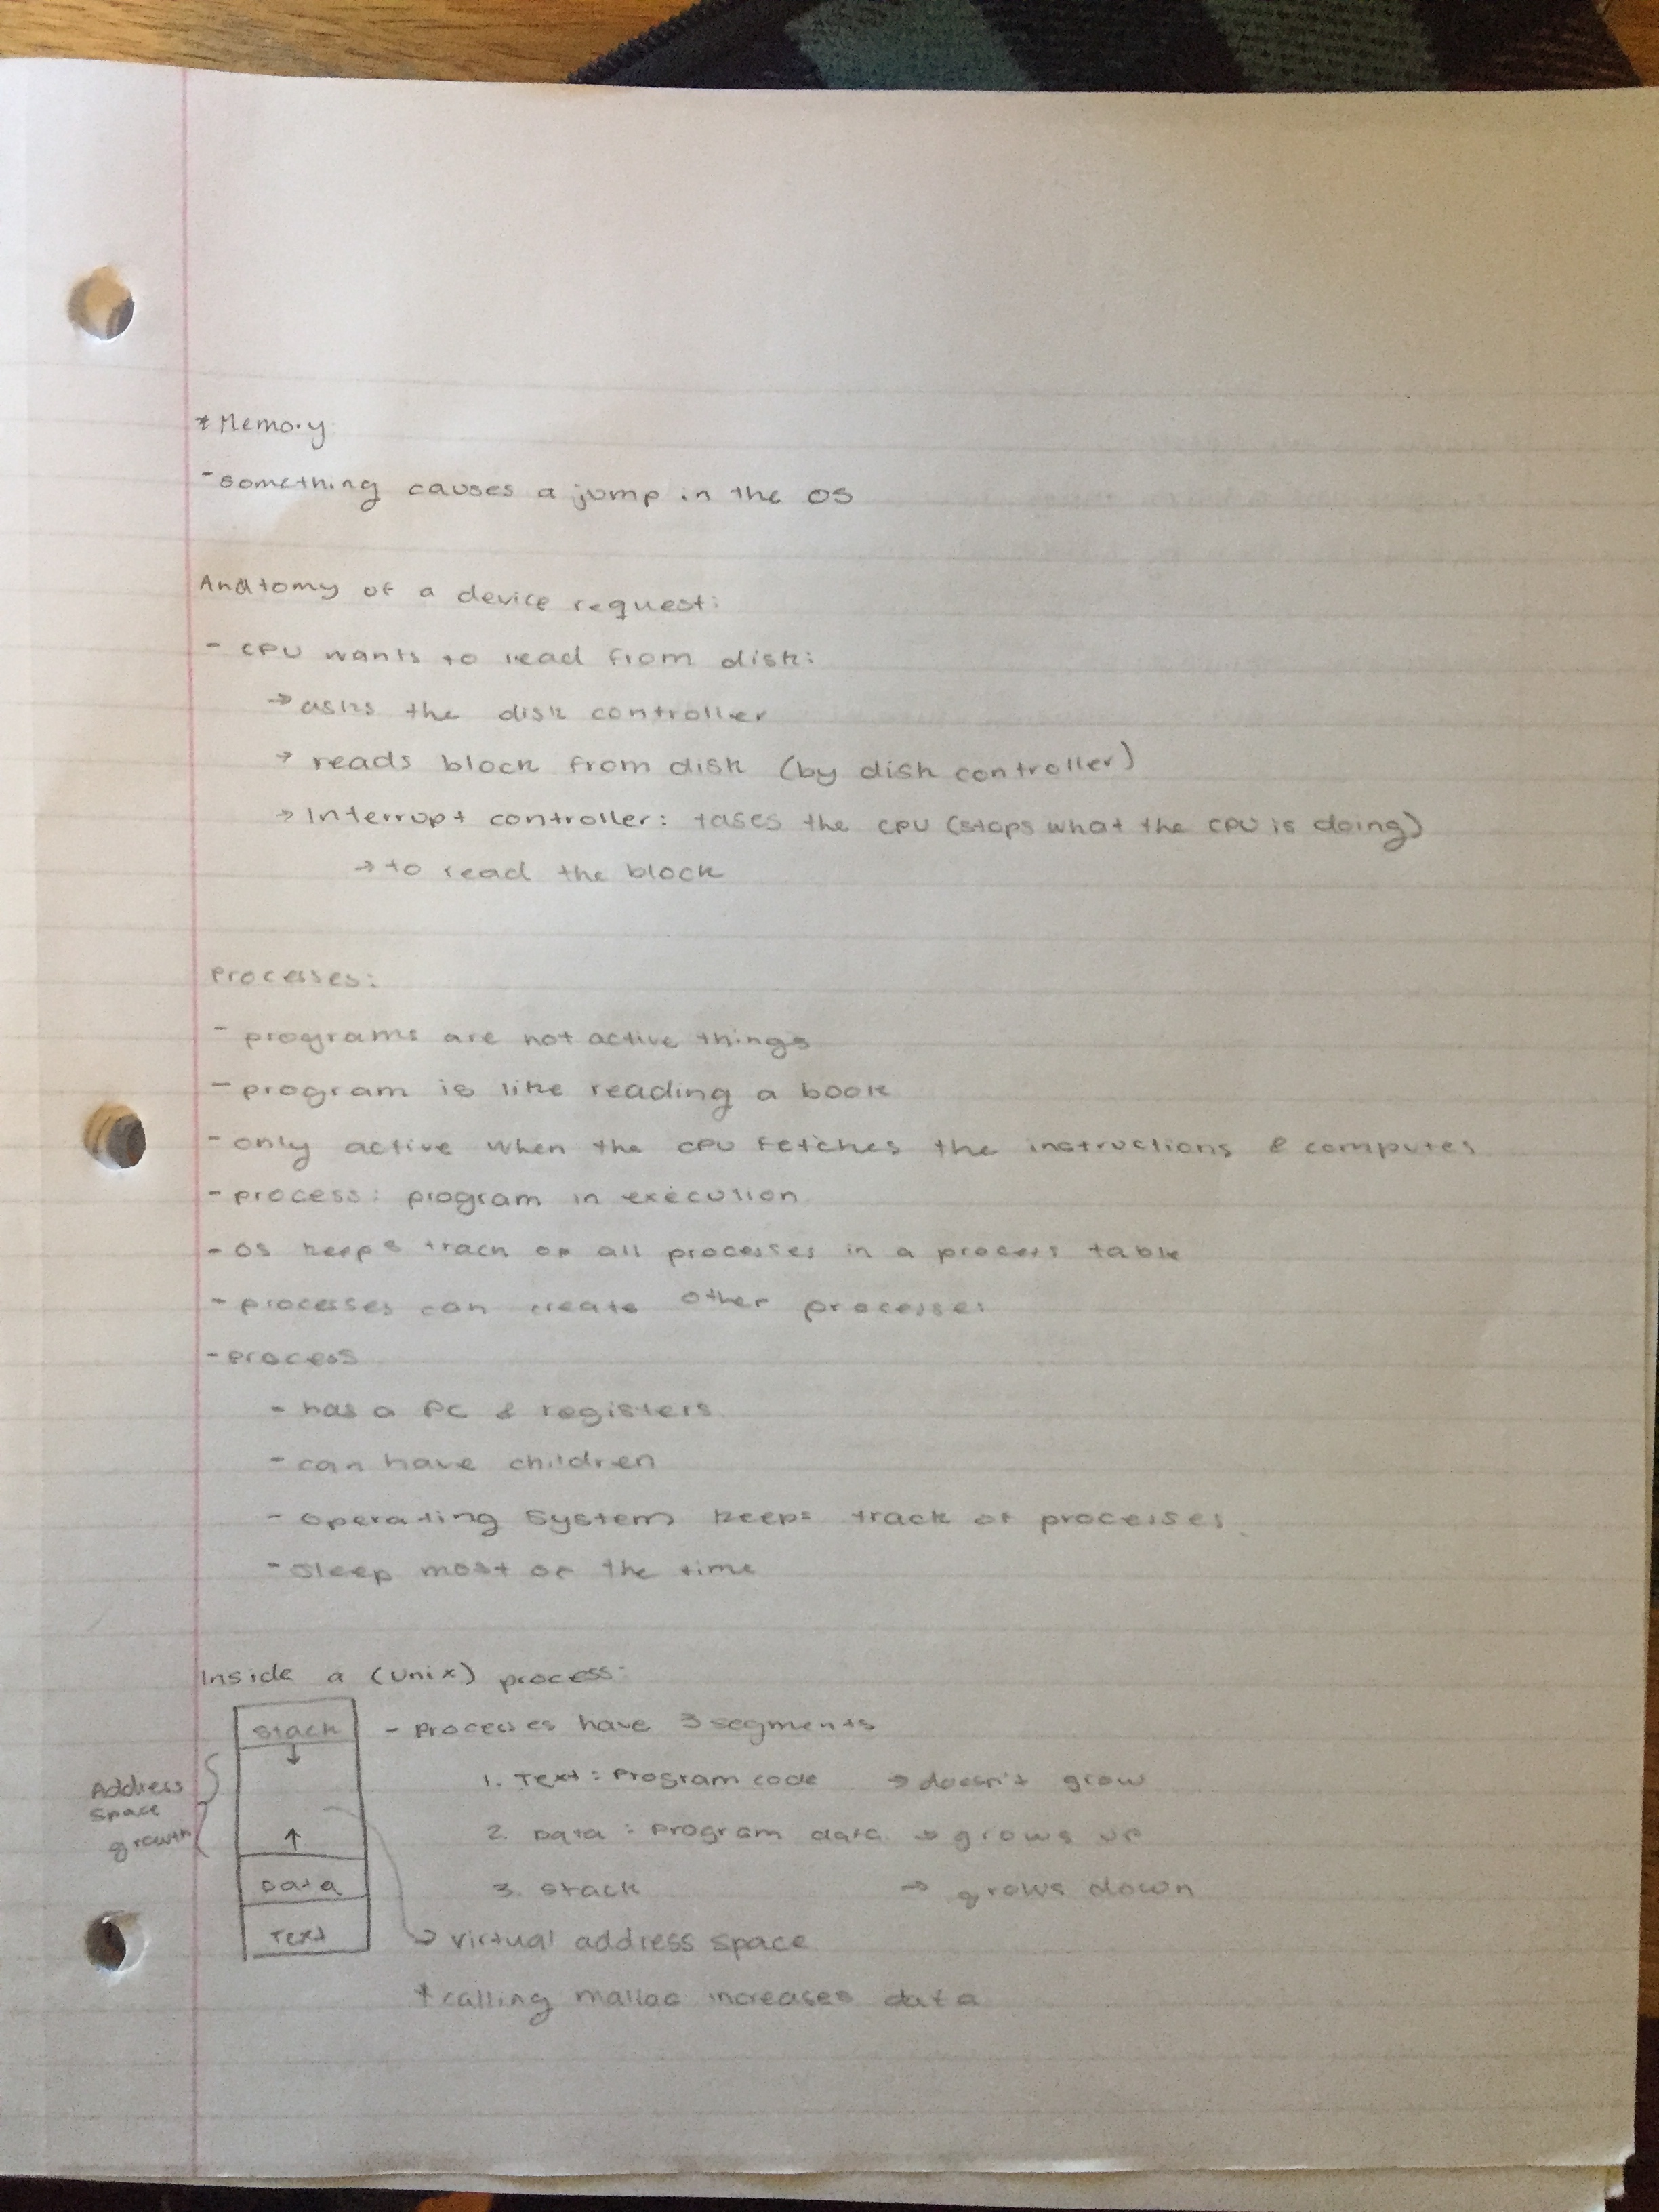 * Memory
- something causes a jump in the OS
Anatomy of a device request:
- CPU wants to read from disk:
→ asks the disk controller
→ reads block from disk (by disk controller)
→ Interrupt controller: tases the CPU (stops what the CPU is doing)
→ to read the block
Processes:
- programs are not active things
- program is like reading a book
- only active when the CPU fetches the instructions & computes
- process: program in execution
- OS keeps track of all processes in a process table
- processes can create other processes
- process
- has a PC & registers
- can have children
- operating system keeps track of processes.
- sleep most of the time
Inside a (Unix) process:
stack
- Processes have 3 segments
↓
Address
space
growth
1. Text: Program code → doesn't grow
2. Data: Program data → grows up
↑
3. stack → grows down
Data
Text
→ virtual address space
* calling malloc increases data